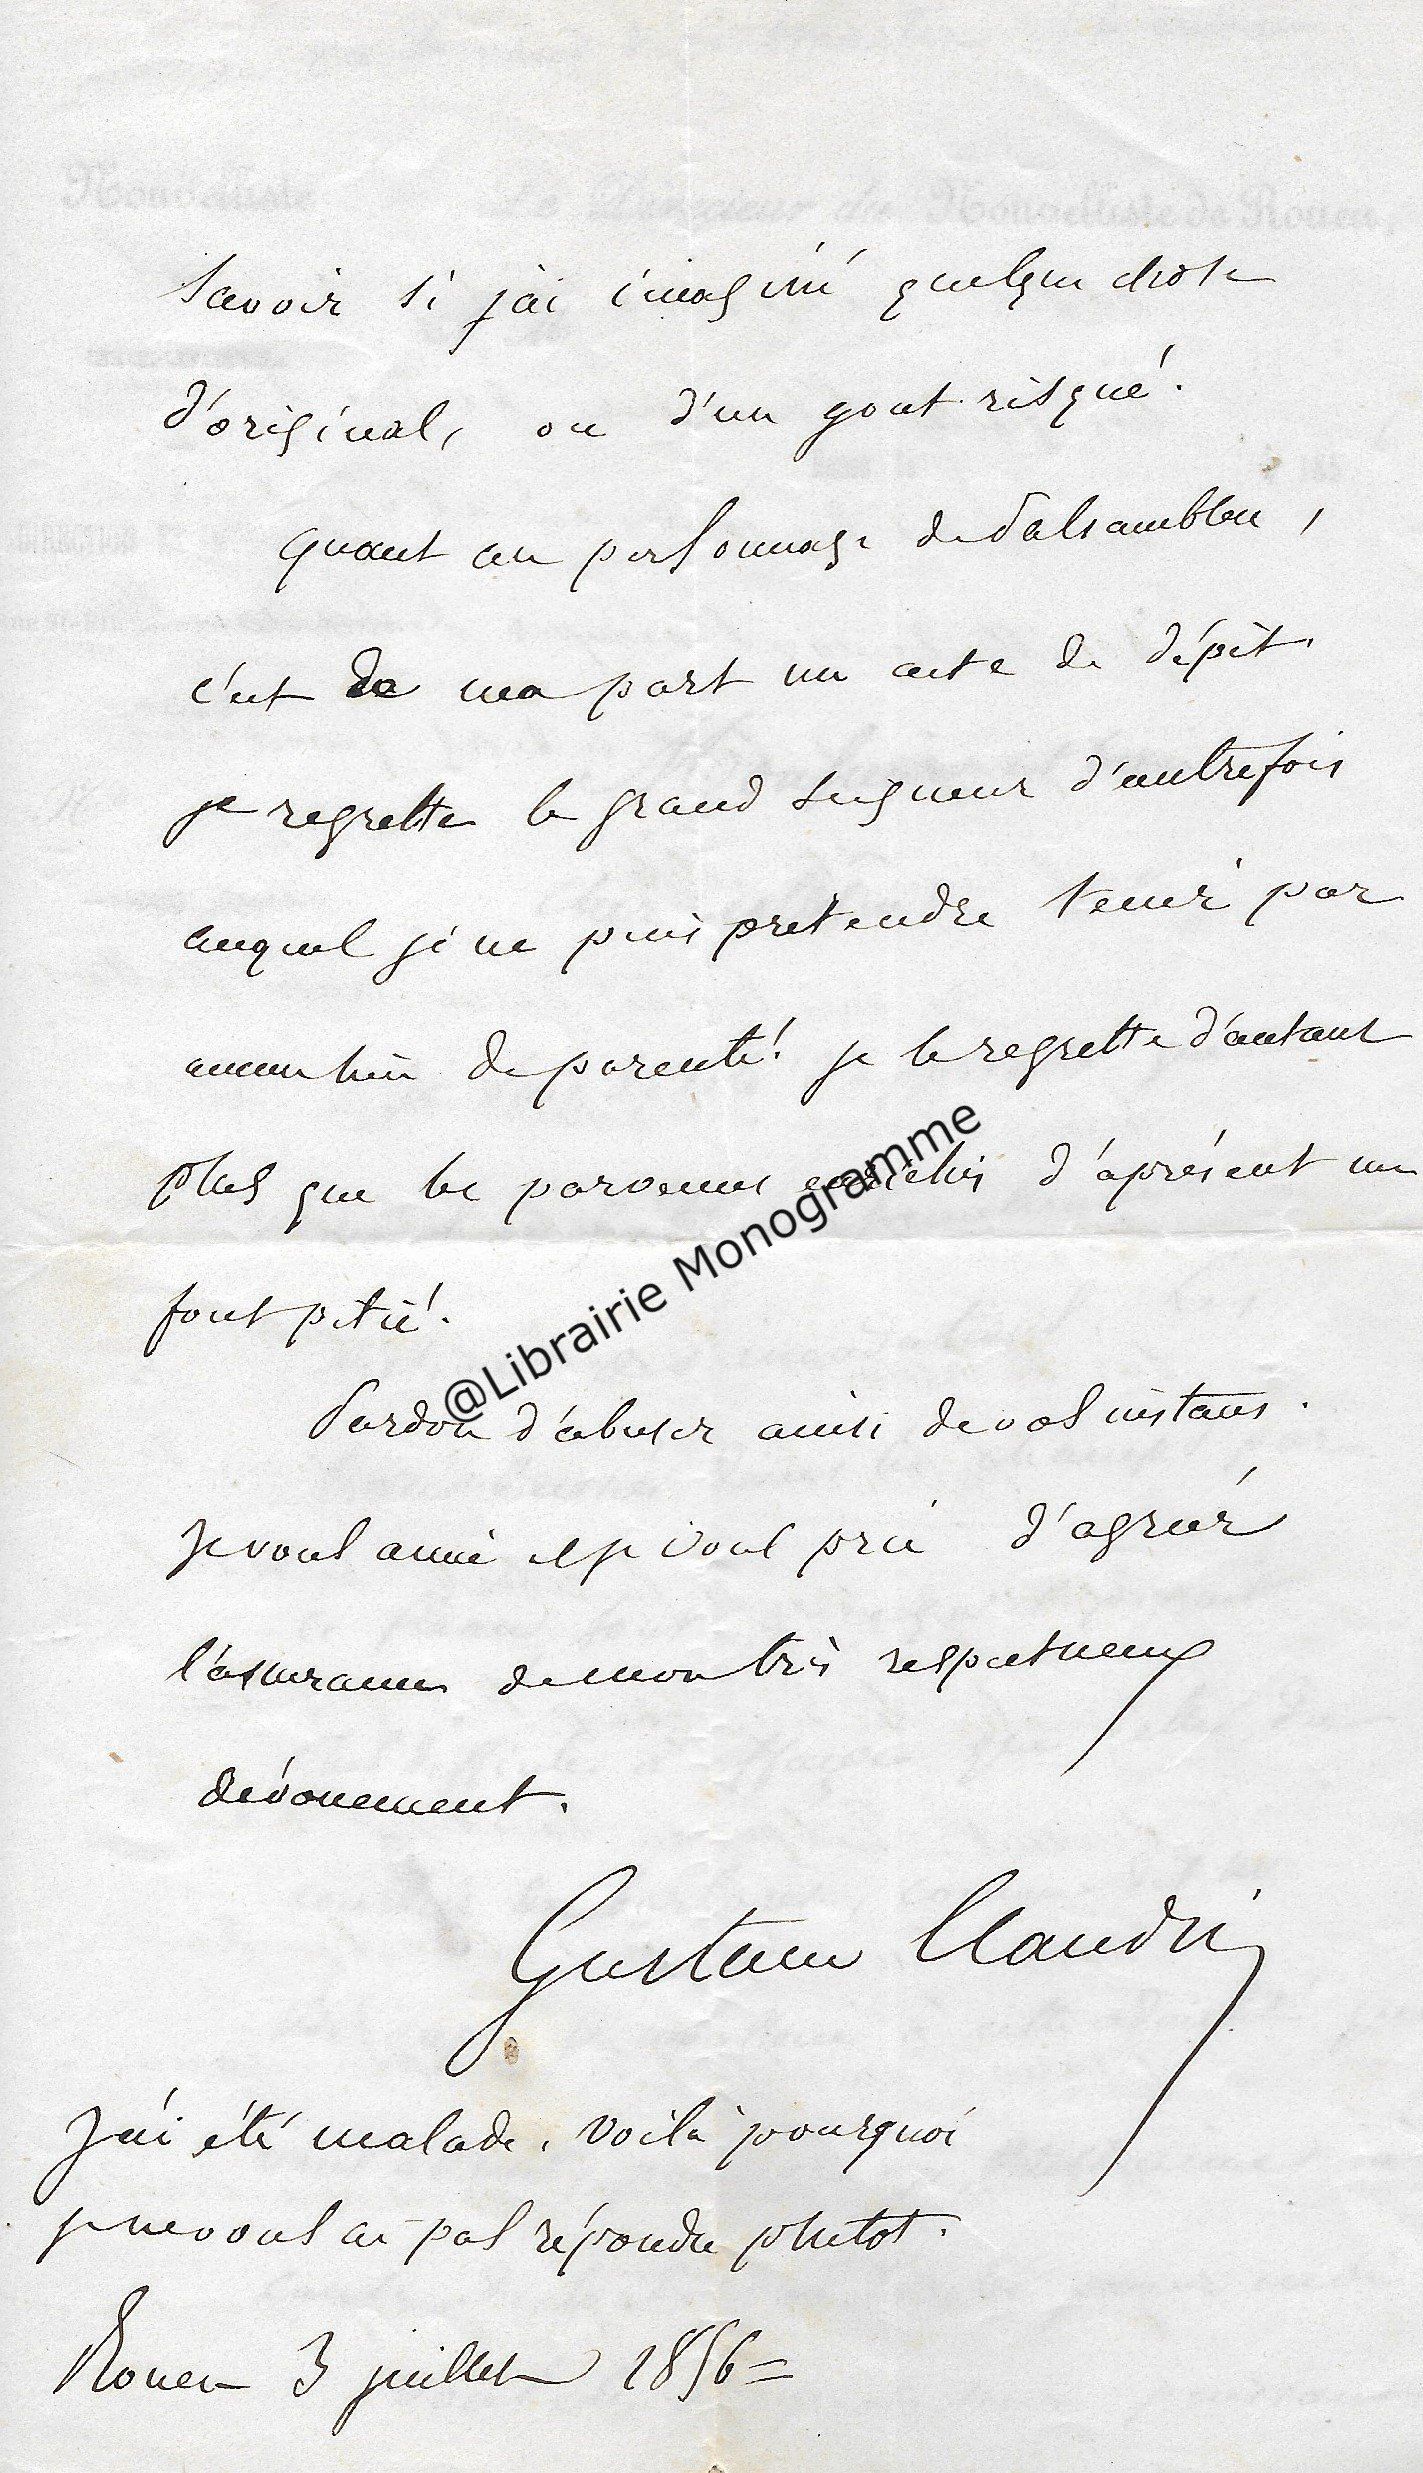 Nouvelliste Le Directeur du Nouvelliste de Rouen,
savoir si j'ai imaginé quelque chose
d'original, ou d'un gout risqué.
Quant au personnage de Palsambleu,
c'est de ma part un acte de dépit.
je regrette le grand seigneur d'autrefois
auquel je ne puis pretendre tenir par
aucun lien de parenté! je le regrette d'autant
plus que les parvenus enrichis d'aprésent me
font pitié.
Pardon d'abuser ainsi de vos instans.
Je vous aime et je vous prie d'agréer
l'assurance de mon très respectueux
dévouement.
Gustave Claudin
J'ai été malade, voilà pourquoi
je ne vous ai pas répondu plutot.
Rouen 3 juillet 1856=
@Librairie Monogramme